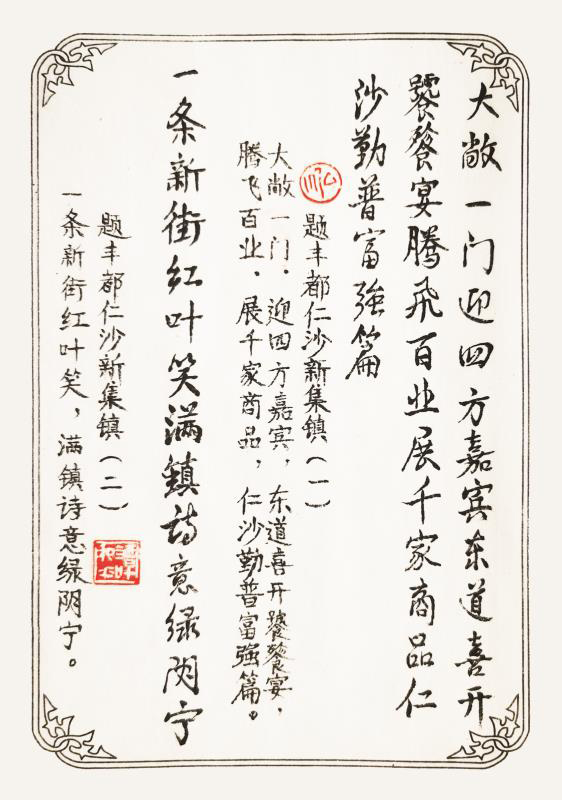 大敞一门迎四方嘉宾东道喜开
饕餮宴腾飞百业展千家商品仁
沙勤普富强篇
题丰都仁沙新集镇（一）
大敞一门，迎四方嘉宾，东道喜开饕餮宴，
腾飞百业，展千家商品，仁沙勤普富强篇。
一条新街红叶笑满镇诗意绿阴宁
题丰都仁沙新集镇（二）
一条新街红叶笑，满镇诗意绿阴宁。